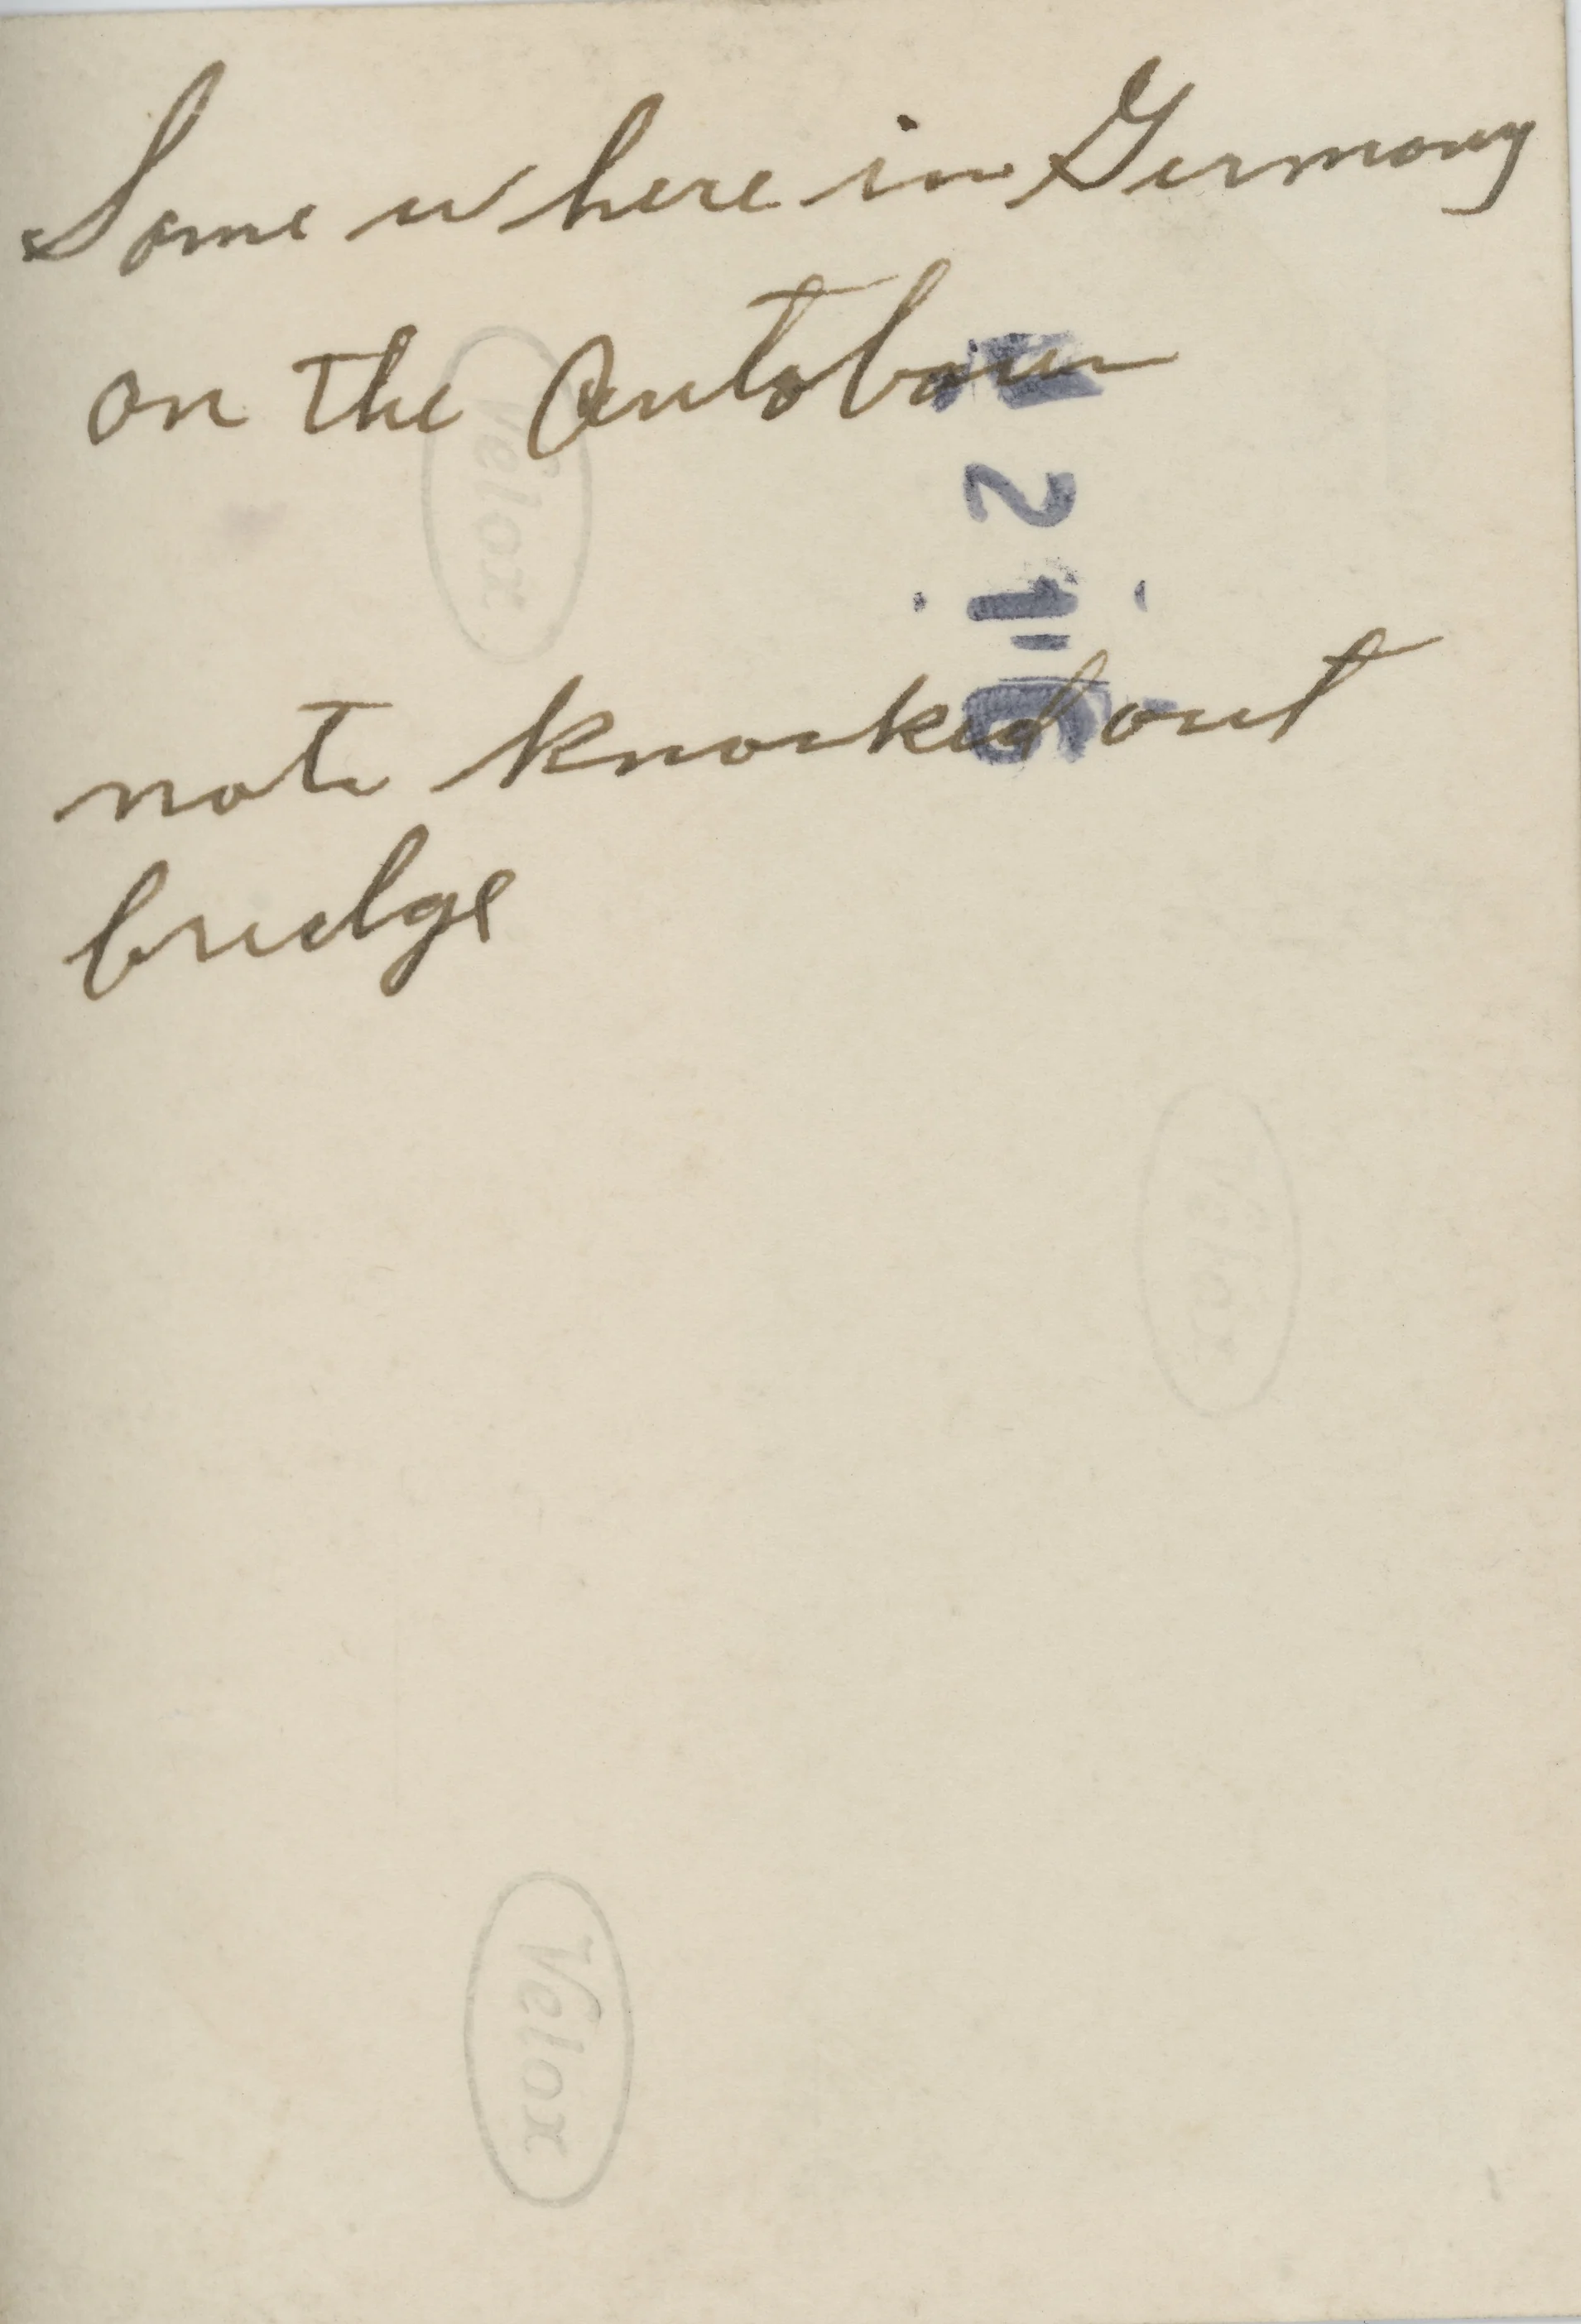 Some where in Germany
on the Autobaun
note knocked out
bridge
Velox
Velox
Velox